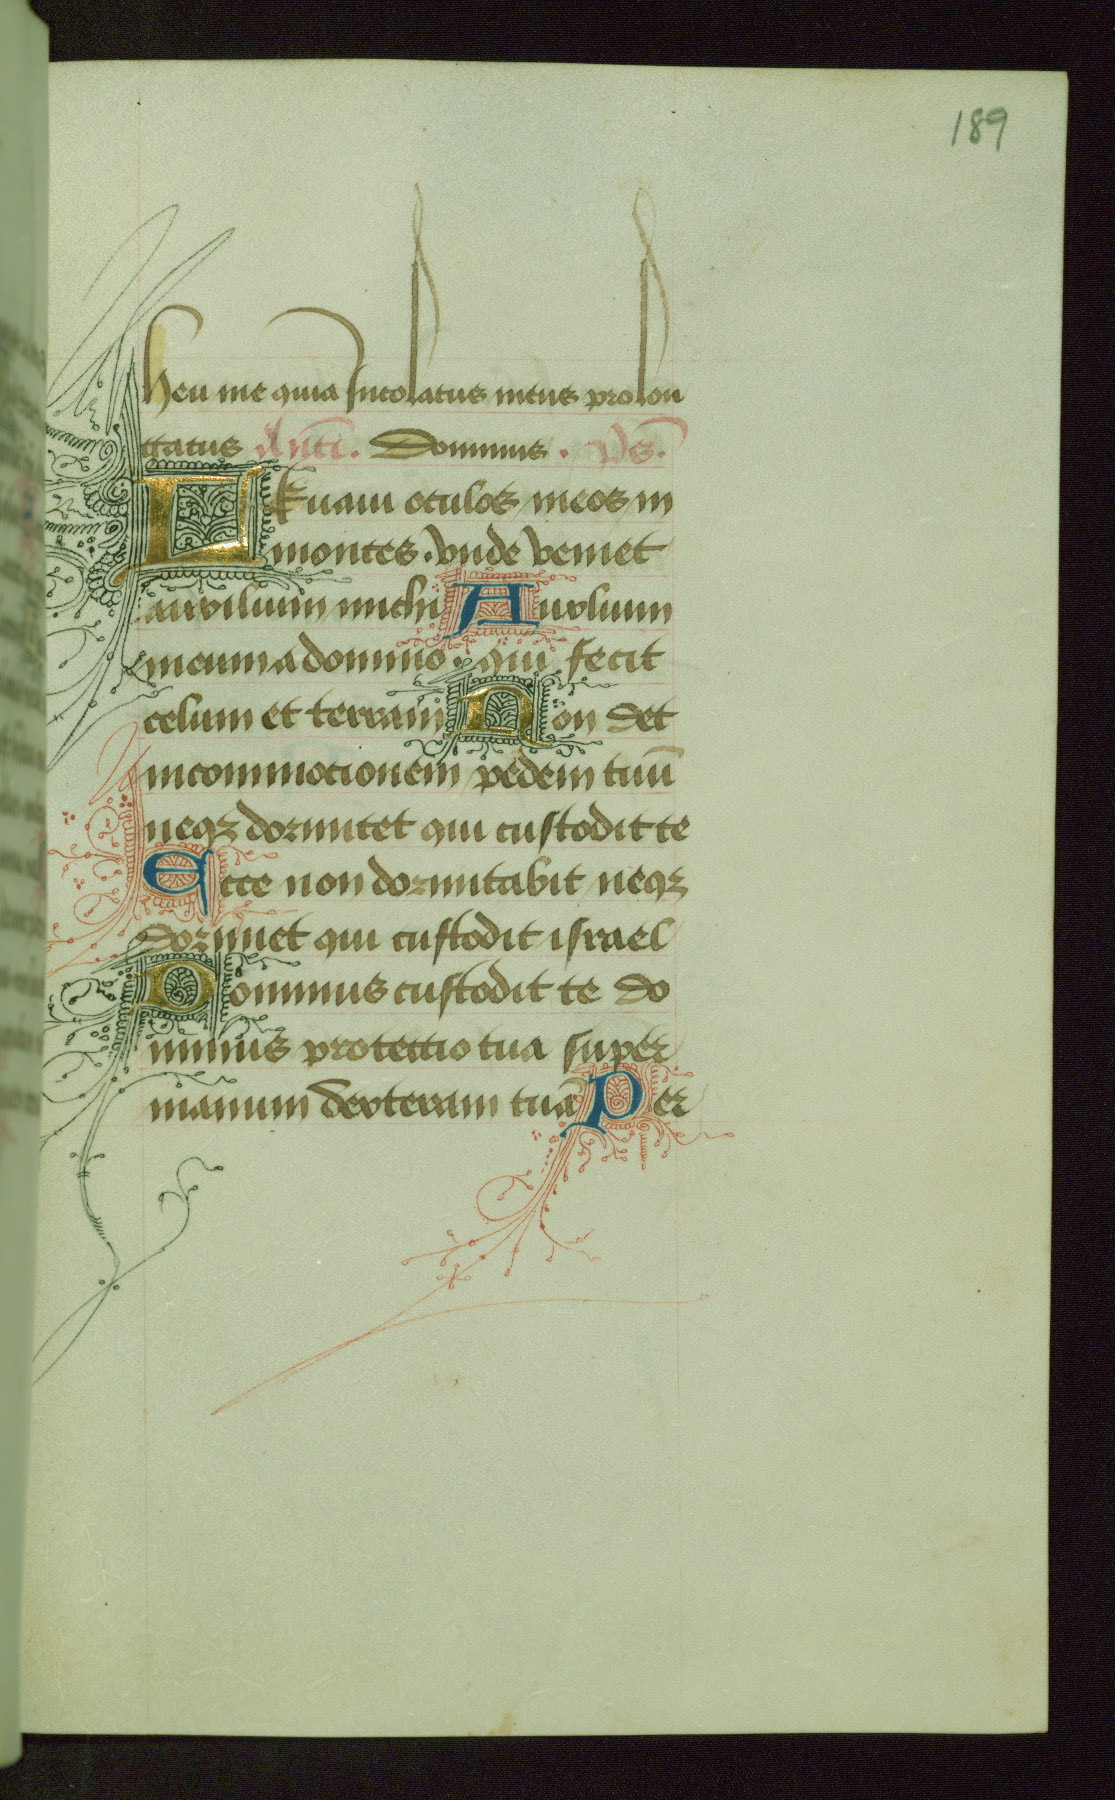 189
heu me quia incolatus meus prolon
gatus Antĩ. Dominus . Ps̃.
LEuaui oculos meos in
montes . vnde veniet
auxilium michi Auxlium
meum a domino . qui fecit
celum et terram Non det
incommocionem pedem tuũ
neqꝫ dormitet qui custodit te
Ecce non dormitabit neqꝫ
dormiet qui custodit israel
Dominus custodit te do
minus protectio tua super
manum dexteram tuã Per